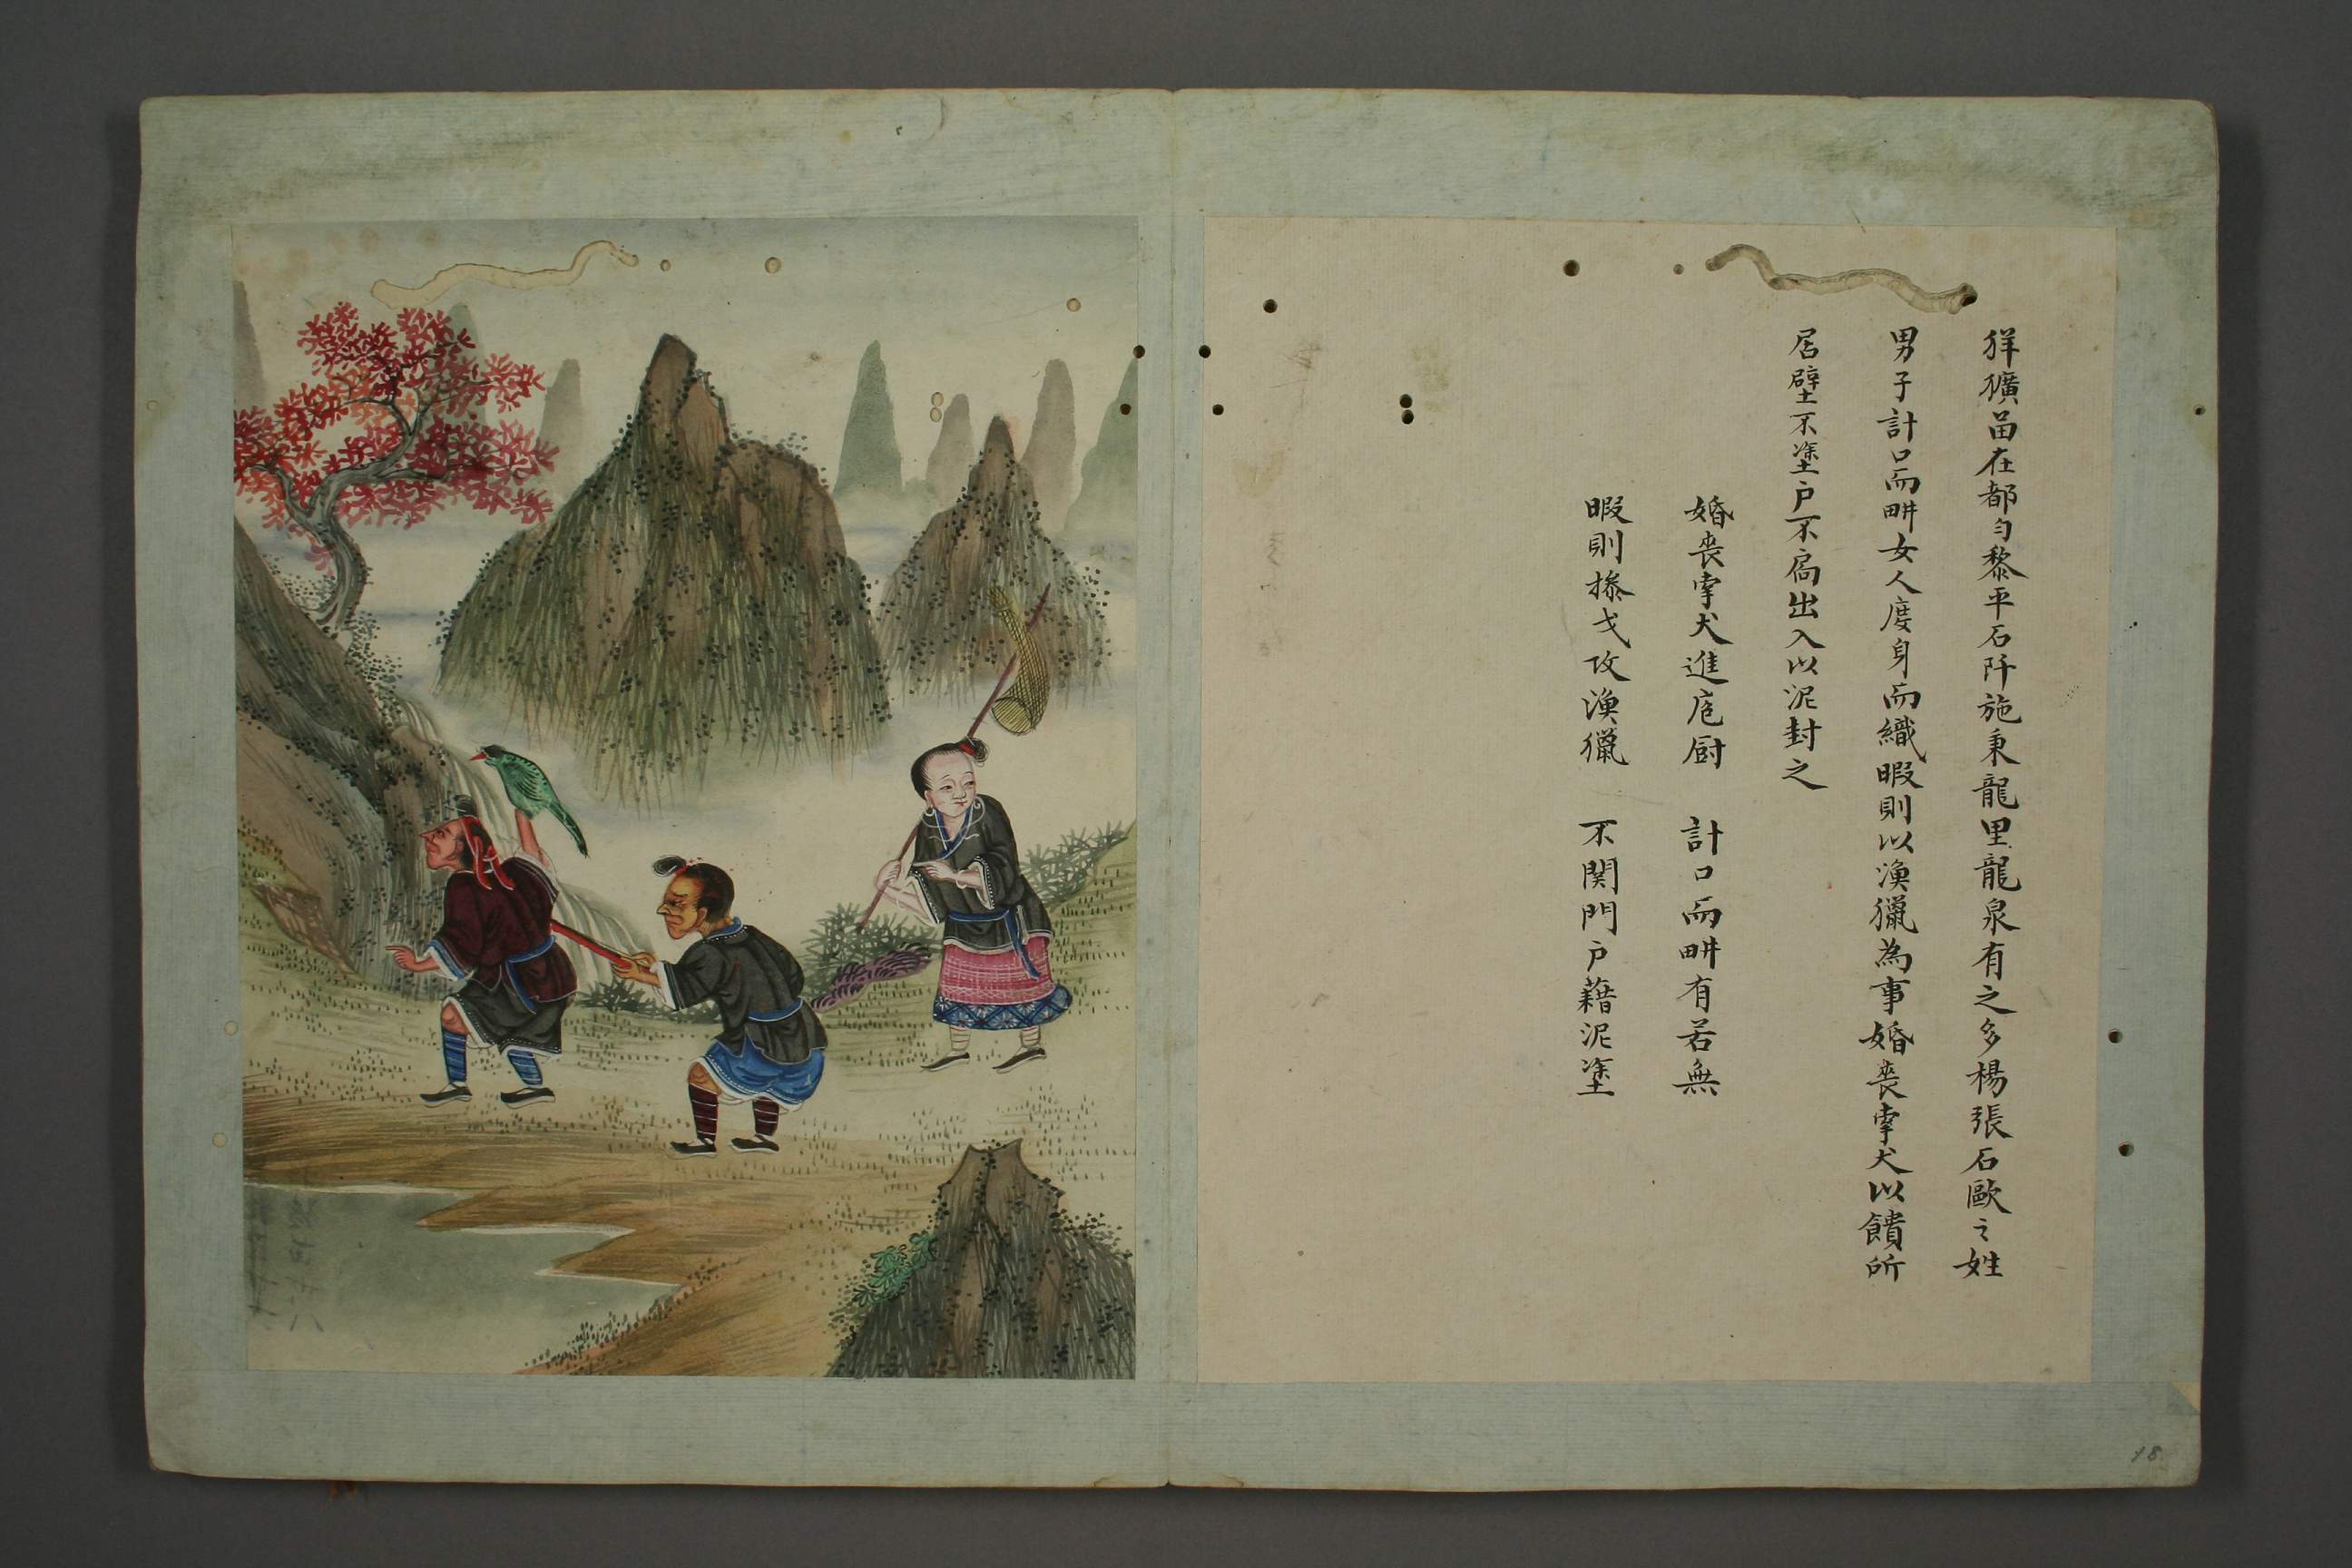 𤞏獷苗在都勻黎平石阡施秉龍里龍泉有之多楊張石歐之姓
男子計口而畊女人度身而織暇則以漁獵為事婚喪宰犬以饋所
居壁不塗戶不扃出入以泥封之
婚喪宰犬進庖厨 計口而畊有若無
暇則摻戈攻漁獵 不関門戶藉泥塗
18